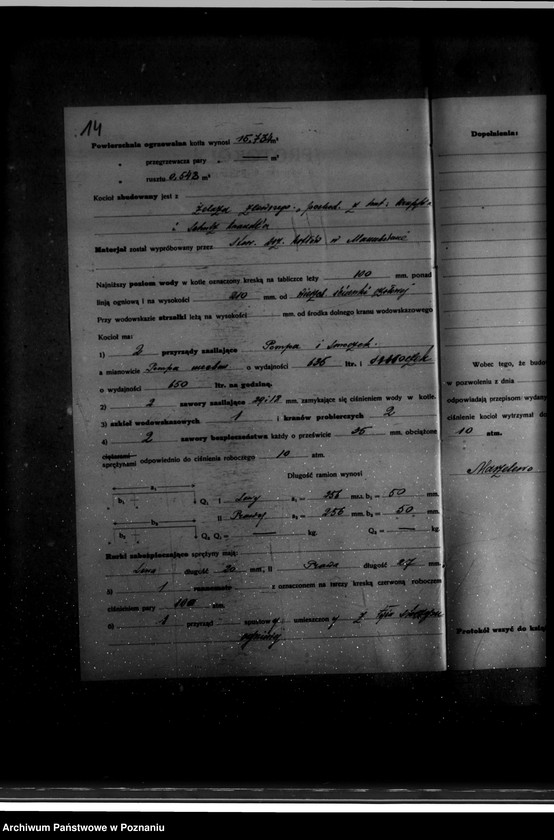 14
Powierzchnia ogrzewalna kotła wynosi 15,734 m²
„ przegrzewacza pary — m²
„ rusztu 0,542 m²
Kocioł zbudowany jest z
żelaza zlewnego
i
Materjał został wypróbowany przez Stow. doz. kotłów w
Najniższy poziom wody w kotle oznaczony kreską na tabliczce leży 100 mm. ponad
linją ogniową i na wysokości 210 mm. od
Przy wodowskazie strzałki leżą na wysokości mm. od środka dolnego kranu wodowskazowego
Kocioł ma:
1) 2 przyrządy zasilające Pompa i smoczek.
a mianowicie Pompa o wydajności 625 ltr. i smoczek
o wydajności 650 ltr. na godzinę.
2) 2 zawory zasilające 29 i 18 mm. zamykające się ciśnieniem wody w kotle.
3) szkieł wodowskazowych 1 i kranów probierczych 2
4) 2 zawory bezpieczeństwa każdy o prześwicie 25 mm. obciążone
ciężarami
sprężynami odpowiednio do ciśnienia roboczego 10 atm.
Długość ramion wynosi
a₁ b₁ Q₁ I Lewy a₁ = 256 mm. b₁ = 50 mm.
II Prawy a₂ = 256 mm. b₂ = 50 mm.
b₂ Q₂ Q₁ = — kg. Q₂ = — kg.
Rurki zabezpieczające sprężyny mają:
Lewa długość 20 mm, II Prawa długość 27 mm,
5) 1 manometr z oznaczonem na tarczy kreską czerwoną roboczem
ciśnieniem pary 10 atm.
6) 1 przyrząd spustowy umieszczony z tyłu
Dopełnienia:
Wobec tego, że budo
w pozwoleniu z dnia
odpowiadają przepisom wydany
ciśnienie kocioł wytrzymał do
10 atm.
Protokół wszyć do księg
Archiwum Państwowe w Poznaniu